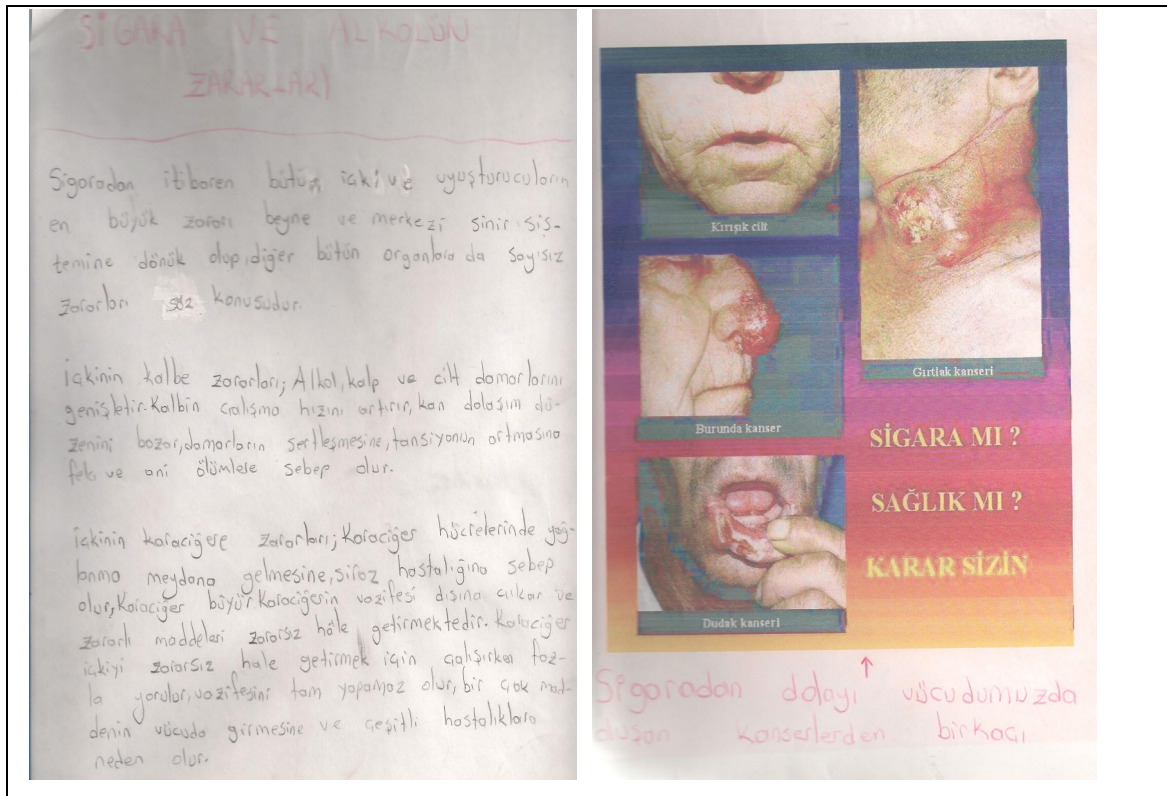 SİGARA VE ALKOLÜN
ZARARLARI
Sigaradan itibaren bütün içki ve uyuşturucuların
en büyük zararı beyne ve merkezi sinir sis-
temine dönük olup, diğer bütün organlara da sayısız
zararları söz konusudur.
içkinin kalbe zararları; Alkol, kalp ve cilt damarlarını
genişletir. Kalbin çalışma hızını artırır, kan dolaşım dü-
zenini bozar, damarların sertleşmesine, tansiyonun artmasına
felç ve ani ölümlere sebep olur.
içkinin karaciğere zararları; Karaciğer hücrelerinde yağ-
lanma meydana gelmesine, siroz hastalığına sebep
olur, Karaciğer büyür. Karaciğerin vazifesi dışına çıkar ve
zararlı maddeleri zararsız hâle getirmektedir. Karaciğer
içkiyi zararsız hale getirmek için çalışırken faz-
la yorulur, vazifesini tam yapamaz olur, bir çok mad-
denin vücuda girmesine ve çeşitli hastalıklara
neden olur.
Kırışık cilt
Gırtlak kanseri
Burunda kanser
Dudak kanseri
SİGARA MI ?
SAĞLIK MI ?
KARAR SİZİN
Sigaradan dolayı vücudumuzda
oluşan kanserlerden birkaçı